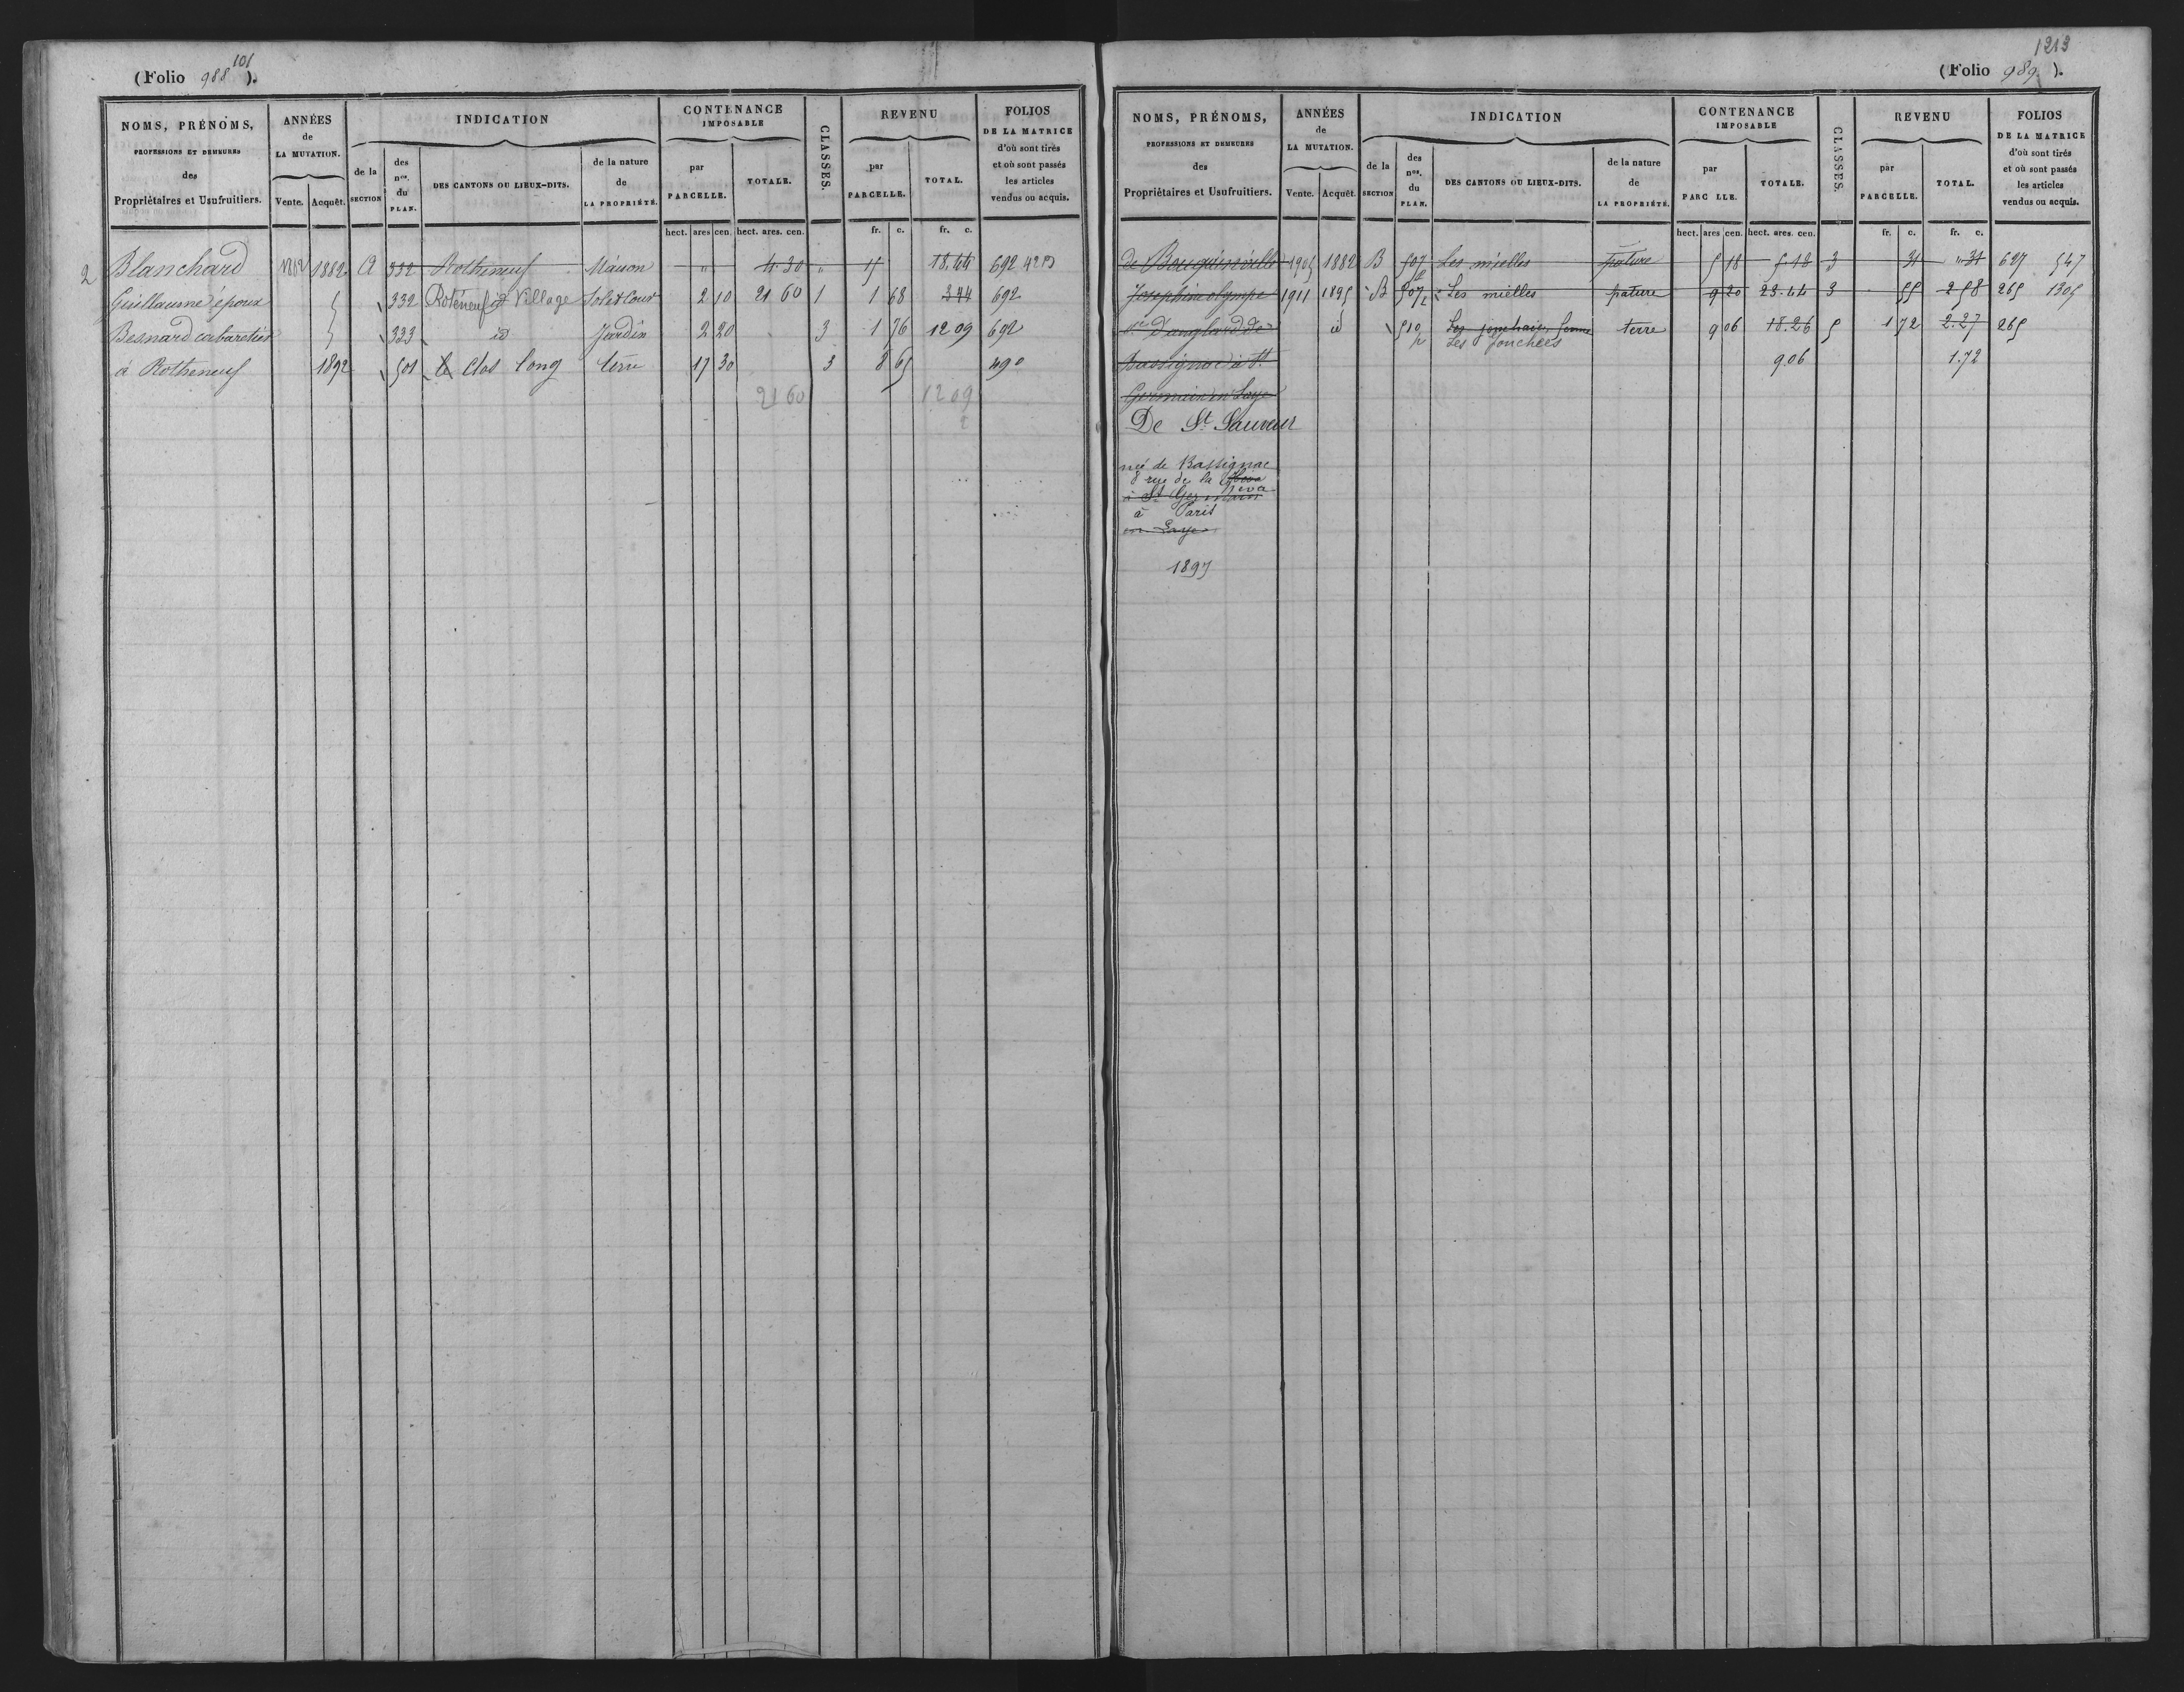 101
(Folio 988 ).
NOMS, PRÉNOMS,
PROFESSIONS ET DEMEURES
des
Propriétaires et Usufruitiers.
ANNÉES
de
LA MUTATION.
Vente. Acquêt.
INDICATION
de la
SECTION
des
nos.
du
PLAN.
DES CANTONS OU LIEUX-DITS.
de la nature
de
LA PROPRIÉTÉ.
CONTENANCE
IMPOSABLE
par
PARCELLE.
TOTALE.
CLASSES.
REVENU
par
PARCELLE.
TOTAL.
FOLIOS
DE LA MATRICE
d'où sont tirés
et où sont passés
les articles
vendus ou acquis.
hect. ares cen. hect. ares. cen. fr. c. fr. c.
2 Blanchard 1882 A 332 Rotheneuf Maison " 4 30 " 15 18.44 692
Guillaume époux 332 Roténeuf id Village Sol et Cour 2 10 21 60 1 1 68 3 44 692
Besnard cabaretier 333 id Jardin 2 20 3 1 76 12 09 692
à Rotheneuf 1892 501 le Clos long terre 17 30 3 8 65 490
21 60 12 09
2
1213
(Folio 989 ).
NOMS, PRÉNOMS,
PROFESSIONS ET DEMEURES
des
Propriétaires et Usufruitiers.
ANNÉES
de
LA MUTATION.
Vente. Acquêt.
INDICATION
de la
SECTION
des
nos.
du
PLAN.
DES CANTONS OU LIEUX-DITS.
de la nature
de
LA PROPRIÉTÉ.
CONTENANCE
IMPOSABLE
par
PARC LLE.
TOTALE.
CLASSES.
REVENU
par
PARCELLE.
TOTAL.
FOLIOS
DE LA MATRICE
d'où sont tirés
et où sont passés
les articles
vendus ou acquis.
hect. ares cen. hect. ares. cen. fr. c. fr. c.
de Bouquinville 1905 1882 B 507 p Les mielles pature 5 18 5.18 3 31 " 31 627 547
Josephine olympe 1911 1895 B 507 Les mielles pature 9 20 23.44 3 55 2 58 265 1305
id 510 p terre 9 06 18.26 5 1 72 2.27 265
Les Jonchées
Bassignac à St. 9.06 1.72
Germain en Laye
De St Sauveur
née de Bassignac
8 rue de la
Néva
à St Germain
à Paris
en Laye
1897